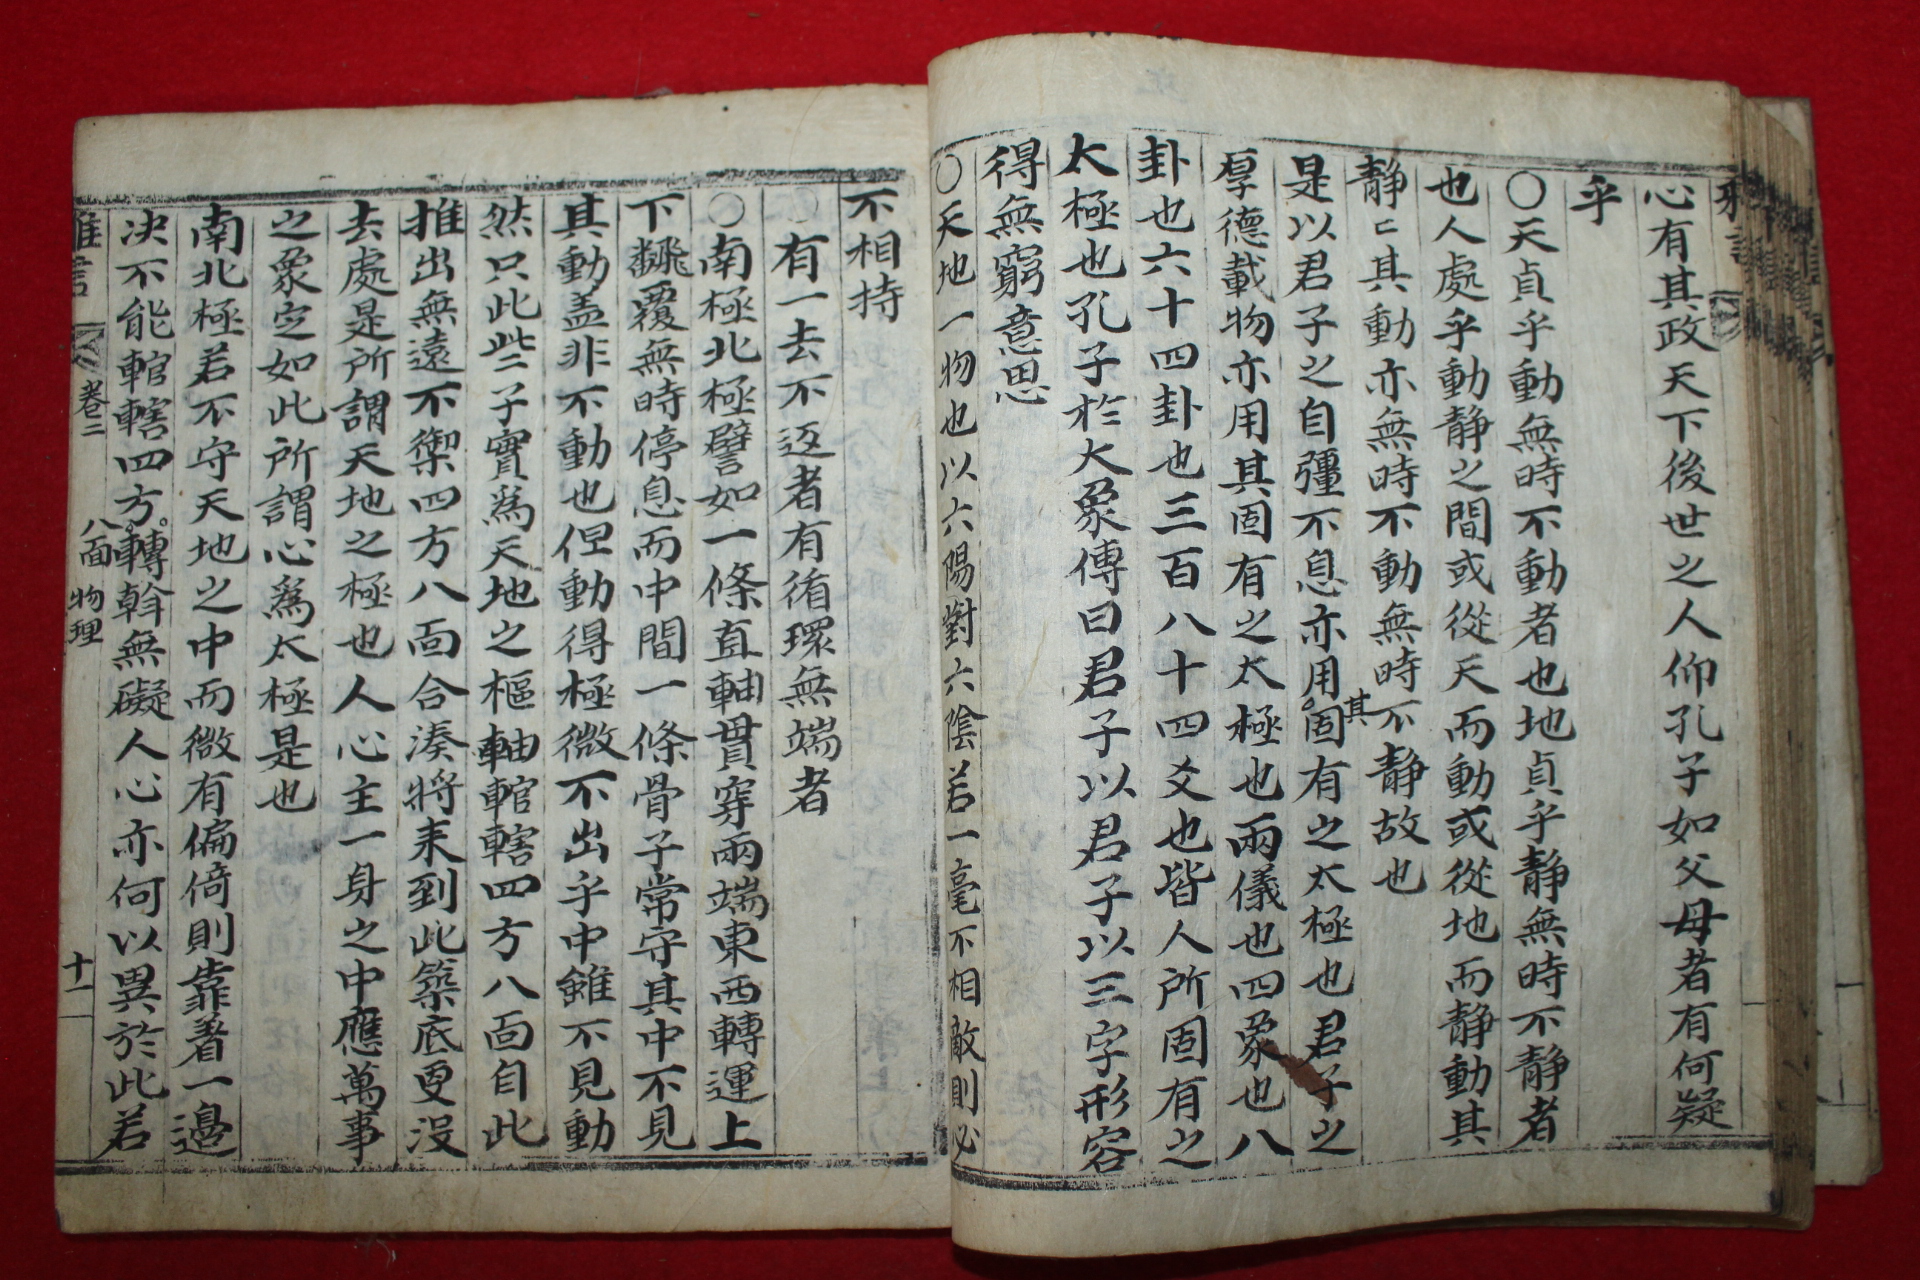 心有其政天下後世之人仰孔子如父母者有何疑
乎
○天貞乎動無時不動者也地貞乎静無時不静者
也人處乎動静之間或從天而動或從地而静動其
静〻其動亦無時不動無時不静故也
是以君子之自彊不息亦用其固有之太極也君子之
厚德載物亦用其固有之太極也兩儀也四象也八
卦也六十四卦也三百八十四爻也皆人所固有之
太極也孔子於大象傳曰君子以君子以三字形容
得無窮意思
○天地一物也以六陽對六陰若一毫不相敵則必
不相持
有一去不返者有循環無端者
○南極北極譬如一條直軸貫穿兩端東西轉運上
下飜覆無時停息而中間一條骨子常守其中不見
其動盖非不動也但動得極微不出乎中雖不見動
然只此些子實爲天地之樞軸輨轄四方八面自此
推出無遠不禦四方八面合湊將来到此築底更没
去處是所謂天地之極也人心主一身之中應萬事
之衆㝎如此所謂心爲太極是也
南北極若不守天地之中而微有偏倚則靠着一邉
决不能輨轄四方八面轉斡無礙人心亦何以異於此若
卷二
物理
十一